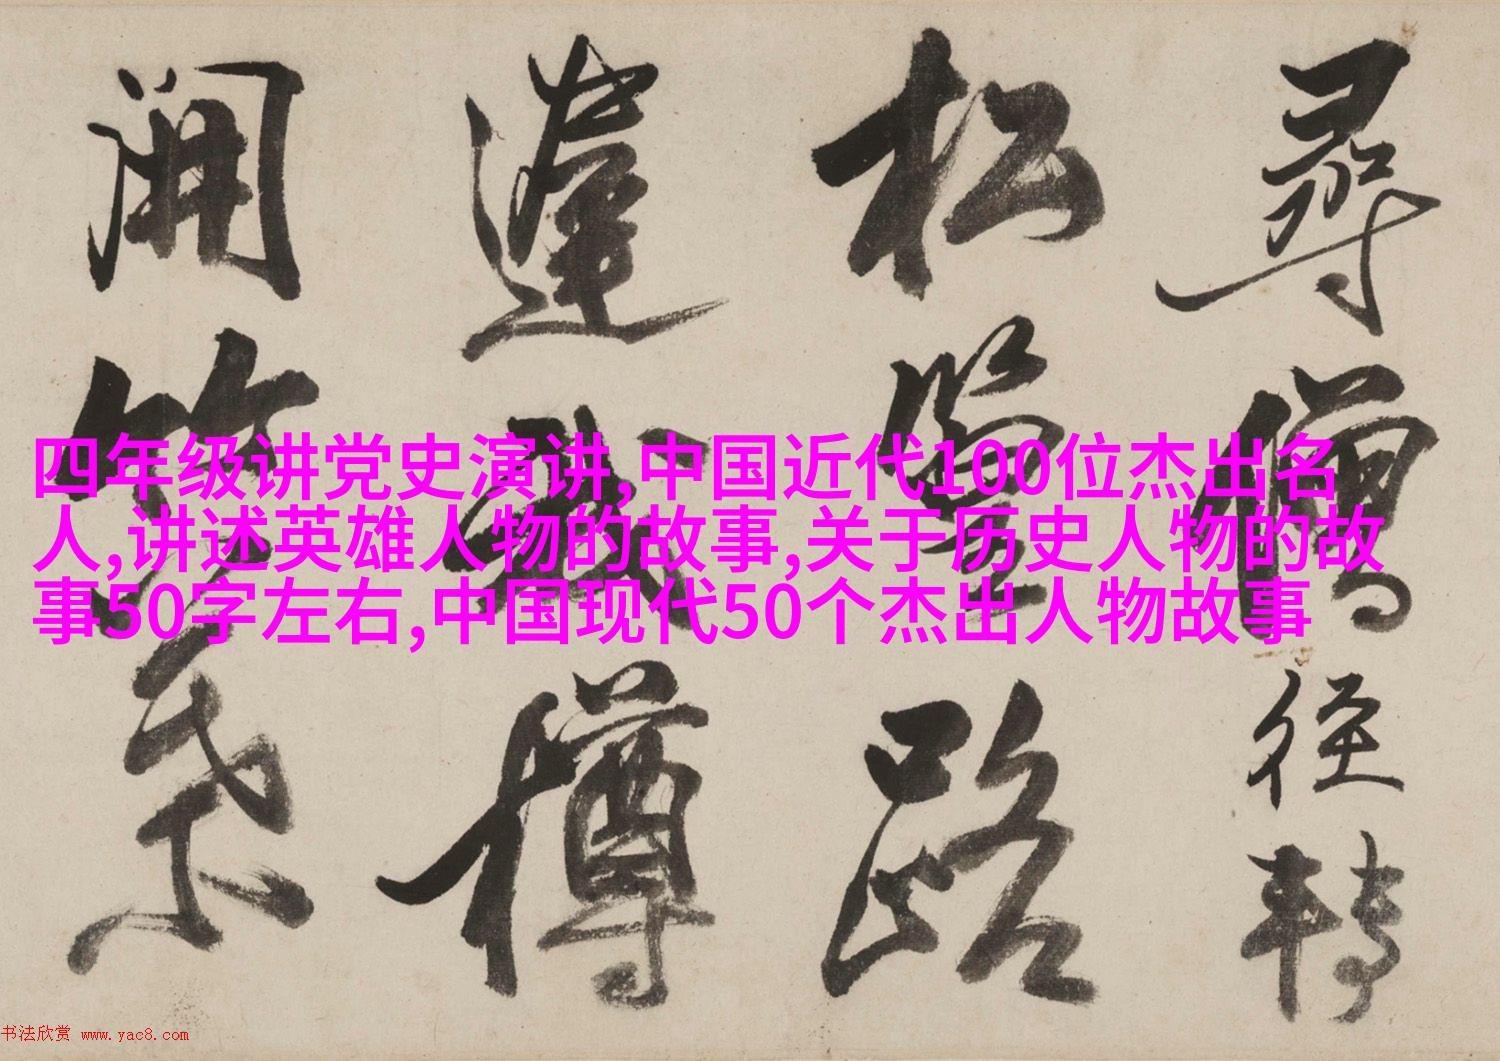 尋僧径轉
松壑路
蓬我樽
開竹
四年级讲党史演讲,中国近代100位杰出名
人,讲述英雄人物的故事,关于历史人物的故
事50字左右,中国现代50个杰出人物故事
书法欣赏 www.yac8.com